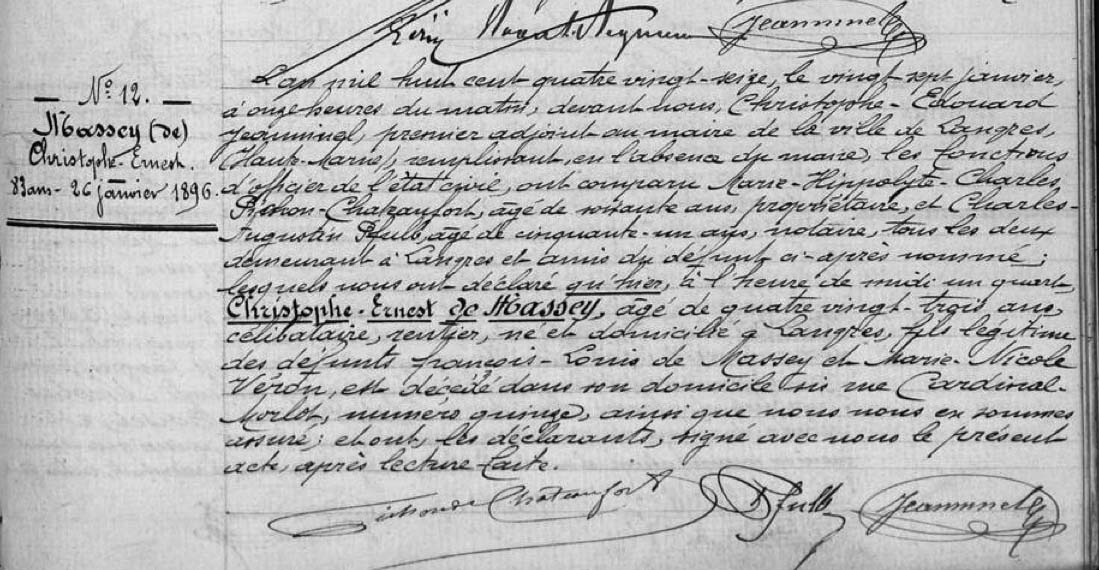 Jeanninel
N° 12.
Massey (de)
Christophe-Ernest.
83 ans - 26 janvier 1896.
L'an mil huit cent quatre vingt-seize, le vingt sept janvier,
à onze heures du matin, devant nous, Christophe-Edouard
Jeanninel, premier adjoint au maire de la ville de Langres,
(Haute-Marne), remplissant, en l'absence du maire, les fonctions
d'officier de l'état civil, ont comparu Marie-Hippolyte-Charles,
Pichon-Chateaufort, âgé de soixante ans, propriétaire, et Charles-
Augustin Pfulb, âgé de cinquante-un ans, notaire, tous les deux
demeurant à Langres et amis du défunt ci-après nommé ;
lesquels nous ont déclaré qu'hier, à l'heure de midi un quart,
Christophe-Ernest de Massey, âgé de quatre vingt-trois ans,
célibataire, rentier, né et domicilié à Langres, fils légitime
des défunts françois-Louis de Massey et Marie-Nicole
Véron, est décédé dans son domicile sis rue Cardinal-
Morlot, numéro quinze, ainsi que nous nous en sommes
assuré ; et ont, les déclarants, signé avec nous le présent
acte, après lecture faite.
Pichon de Chateaufort Pfulb Jeanninel